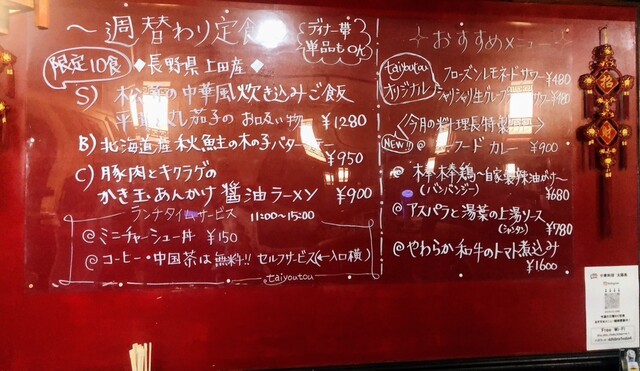 〜週替わり定食
ディナー帯
単品もOK
限定10食 ◆長野県上田産◆
S) 松茸の中華風炊き込みご飯
茄子の
¥1280
B) 北海道産秋鮭の木の子バター
¥950
C) 豚肉とキクラゲの
かき玉あんかけ醤油ラーメン ¥900
ランチタイムサービス 11:00〜15:00
@ミニチャーシュー丼 ¥150
@コーヒー・中国茶は無料!! セルフサービス(←入口横)
taiyoutou
おすすめメニュー
taiyoutou
オリジナル
フローズンレモネードサワー ¥480
シャリシャリ生グレープ サワー ¥480
〈今月の料理長特製〉
NEW!! @ フード カレー ¥900
@ 棒棒鶏〜自家製辣油がけ〜
(バンバンジー) ¥680
@ アスパラと湯葉の上湯ソース
(シャンタン) ¥780
@やわらか和牛のトマト煮込み
¥1600
招
財
Free Wi-Fi